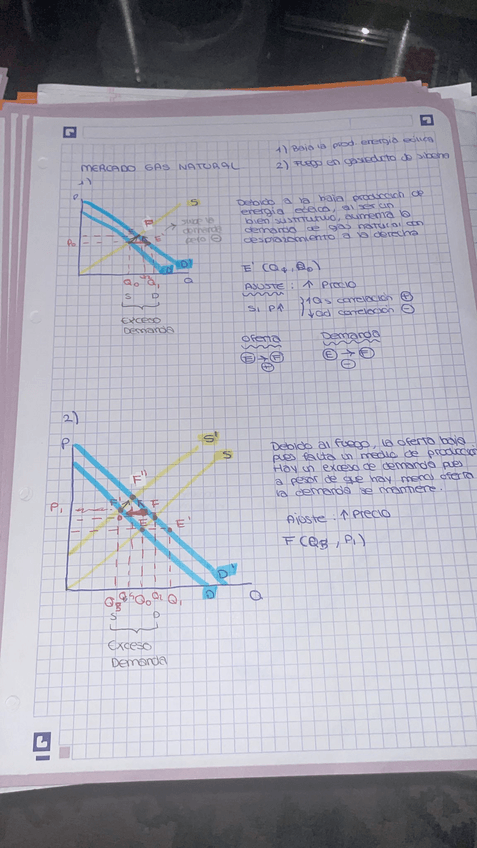 1) Baja la prod. energía eólica
MERCADO GAS NATURAL
2) Fuego en gaseoducto de
1)
P
S
F
E'
P₀
D D'
Q₀ Q₁
Q
S D
Exceso
Demanda
Debido a la baja producción de
energía eólica, al ser un
bien sustitutivo, aumenta la
demanda de gas natural con
desplazamiento a la derecha
E' (Q₁, P₀)
AJUSTE: ↑ Precio
Si P↑ ↑Qs correlación +
↓Qd correlación -
Oferta Demanda
E → F E → F
+ -
2)
P
S'
S
F''
F' F
P₁
E E'
D'
D
Q
S D
Exceso
Demanda
Debido al fuego, la oferta baja
pues falta un medio de
Hay un exceso de demanda pues
a pesar de que hay menos oferta
la demanda se mantiene.
Ajuste: ↑ Precio